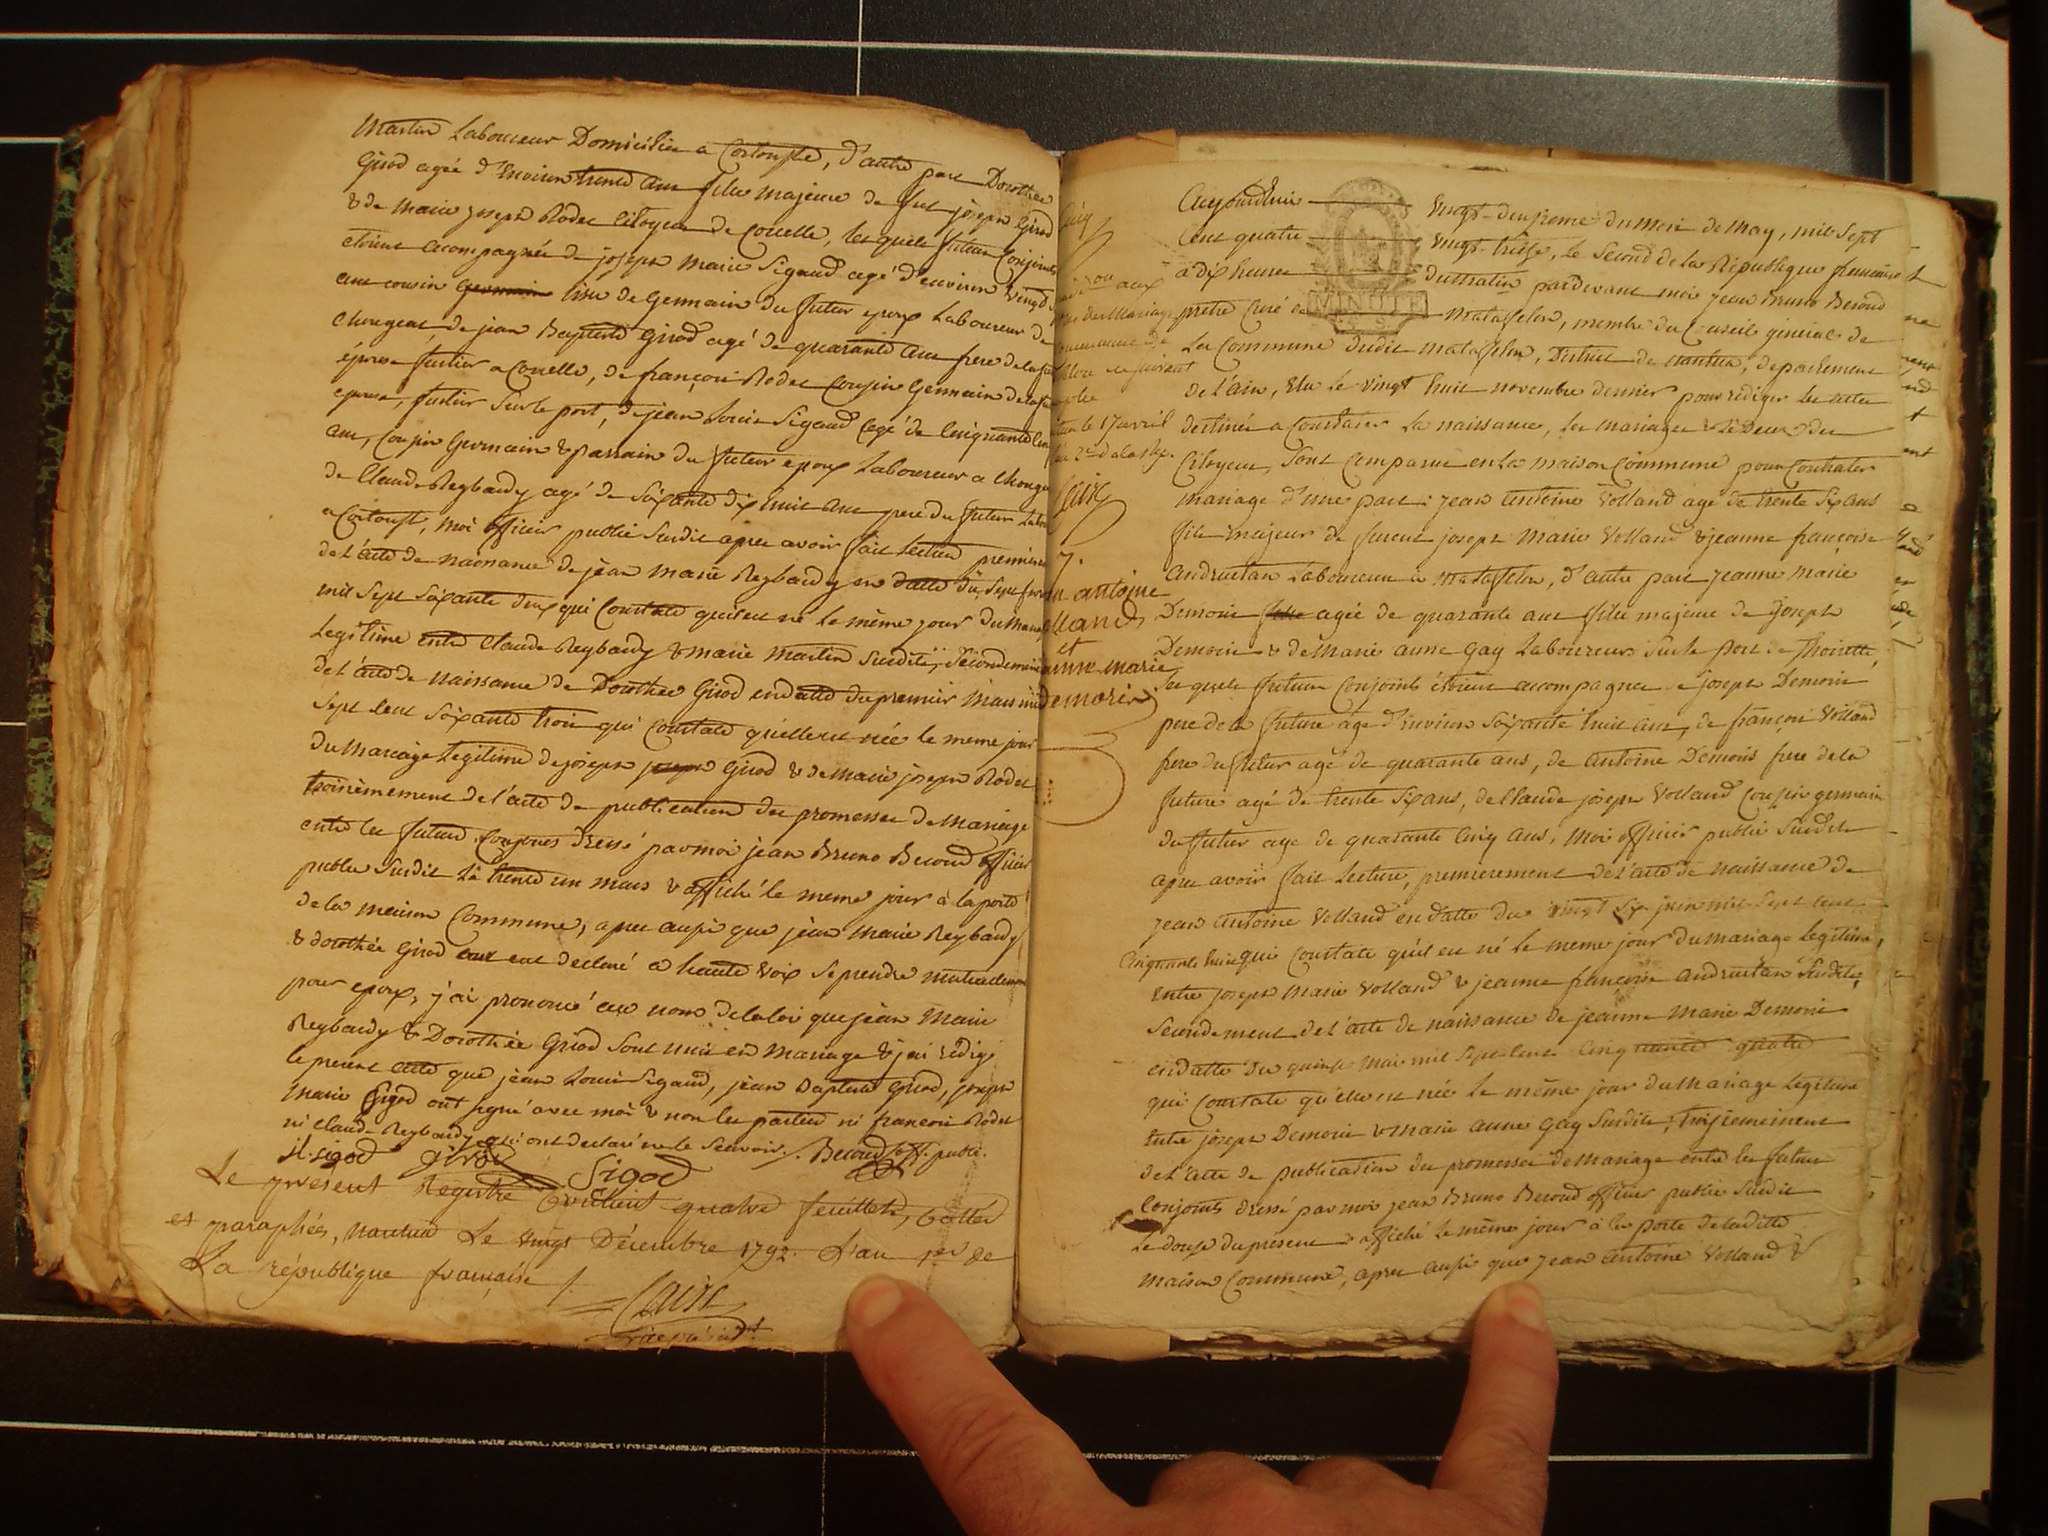 Martin Laboureur Domicilié a Cortoust, d'autre part Dorothée
Girod agée d'Environ trente ans fille majeure de feu joseph Girod
& de Marie joseph Rodet Citoyens de Couelle, lesquels futurs conjoints
etoient accompagnés de joseph Marie Sigaud agé d'environ vingt
ans cousin issu de Germain du futur epoux Laboureur de
de jean Baptiste Girod agé de quarante ans frere de la
épouse futier a Couelle, de françois Rodet Cousin Germain de la
epouse, futier Sur le port, de jean Louis Sigaud agé de Cinquante Cinq
ans, Cousin Germain & parrain du futur epoux Laboureur a
de Claude Reybardy agé de Soixante dix huit ans pere du futur
a Cortoust, moi officier public Susdit apres avoir fait lecture premierement
de l'acte de naissance de jean Marie Reybardy en datte du Sept
mil Sept Soixante deux qui Constate qu'il est né le même jour du Mariage
Legitime entre Claude Reybardy & marie Martin Susdits, Secondement
de l'acte de naissance de Dorothée Girod en datte du premier Mars mil
Sept Cent Soixante trois qui Constate qu'elle est née le meme jour
du Mariage Legitime de joseph joseph Girod & de Marie joseph Rodet
troisiemement de l'acte de publication des promesses de Mariage
entre les futurs Conjoints dressé par moi jean Bruno Beroud officier
public Susdit le trente un mars & affiché le meme jour à la porte
de la maison Commune, apres aussi que jean Marie Reybardy
& dorothée Girod ont eut declaré a haute voix Se prendre mutuellement
pour epoux, j'ai prononcé au nom de la loi que jean Marie
Reybardy & Dorothée Girod Sont unis en Mariage & j'ai redigé
le present acte que jean Louis Sigaud, jean Baptiste Girod, joseph
Marie Sigod ont signé avec moi & non les parties ni françois Rodet
ni Claude Reybardy qui ont declaré ne le Scavoir. Beroud off. public.
jl. sigod Girod Sigod
Le présent Registre Contient quatre feuillets, Cottés
et paraphés, nantua Le vingt Décembre 1792. L'an 1er de
La république française
vice président
ou aux
des Mariages
commune de
le 17 avril
an 2e de la Rép.
7.
antoine
lland
et
anne marie
demorin
Aujourdhui vingt-deuxieme du mois de May, mil Sept
Cent quatre vingt-treize, le Second de la République francaise
à dix heures du matin pardevant moi jean Bruno Beroud
prêtre Curé de Matafelon, membre du Conseil général de
La Commune dudit Matafelon, District de nantua, departement
de l'ain, élu le vingt huit novembre dernier pour rédiger les actes
destinés a Constater la naissance, les mariages & le Décès des
Citoyens, Sont Comparus en la maison Commune pour Contracter
mariage d'une part jean antoine Volland agé de trente Six ans
fils majeur de furent joseph Marie Volland & jeanne françoise
Andruétan Laboureur a Matafelon, d'autre part jeanne Marie
Demoin fille agée de quarante ans fille majeure de joseph
Demoin & de Marie anne Gay Laboureurs Sur le port de Thoirette,
les quels futurs Conjoints étoient accompagnés de joseph Demoin
pere de la future agé d'environ Soixante huit ans, de françois Volland
frere du futur agé de quarante ans, de Antoine Demoin frere de la
future agé de trente Six ans, de Claude joseph Volland Cousin germain
du futur agé de quarante Cinq ans, Moi officier public Susdit
apres avoir fait lecture, premierement de l'acte de naissance de
jean Antoine Volland en datte du vingt Six juin mil Sept cent
Cinquante huit qui Constate qu'il est né le meme jour du mariage legitime,
entre joseph Marie Volland & jeanne françoise Andruétan Susdits,
Secondement de l'acte de naissance de jeanne Marie Demoin
en datte du quinze Mai mil Sept Cent Cinquante quatre
qui Constate qu'elle est née le même jour du Mariage Legitime
entre joseph Demoin & marie anne Gay Susdits, troisiemement
de l'acte de publication des promesses de mariage entre les futurs
Conjoints dressé par moi jean Bruno Beroud officier public Susdit
Le douze du present & affiché le même jour à la porte de la ditte
maison Commune, apres aussi que jean Antoine Volland &
MINUTE